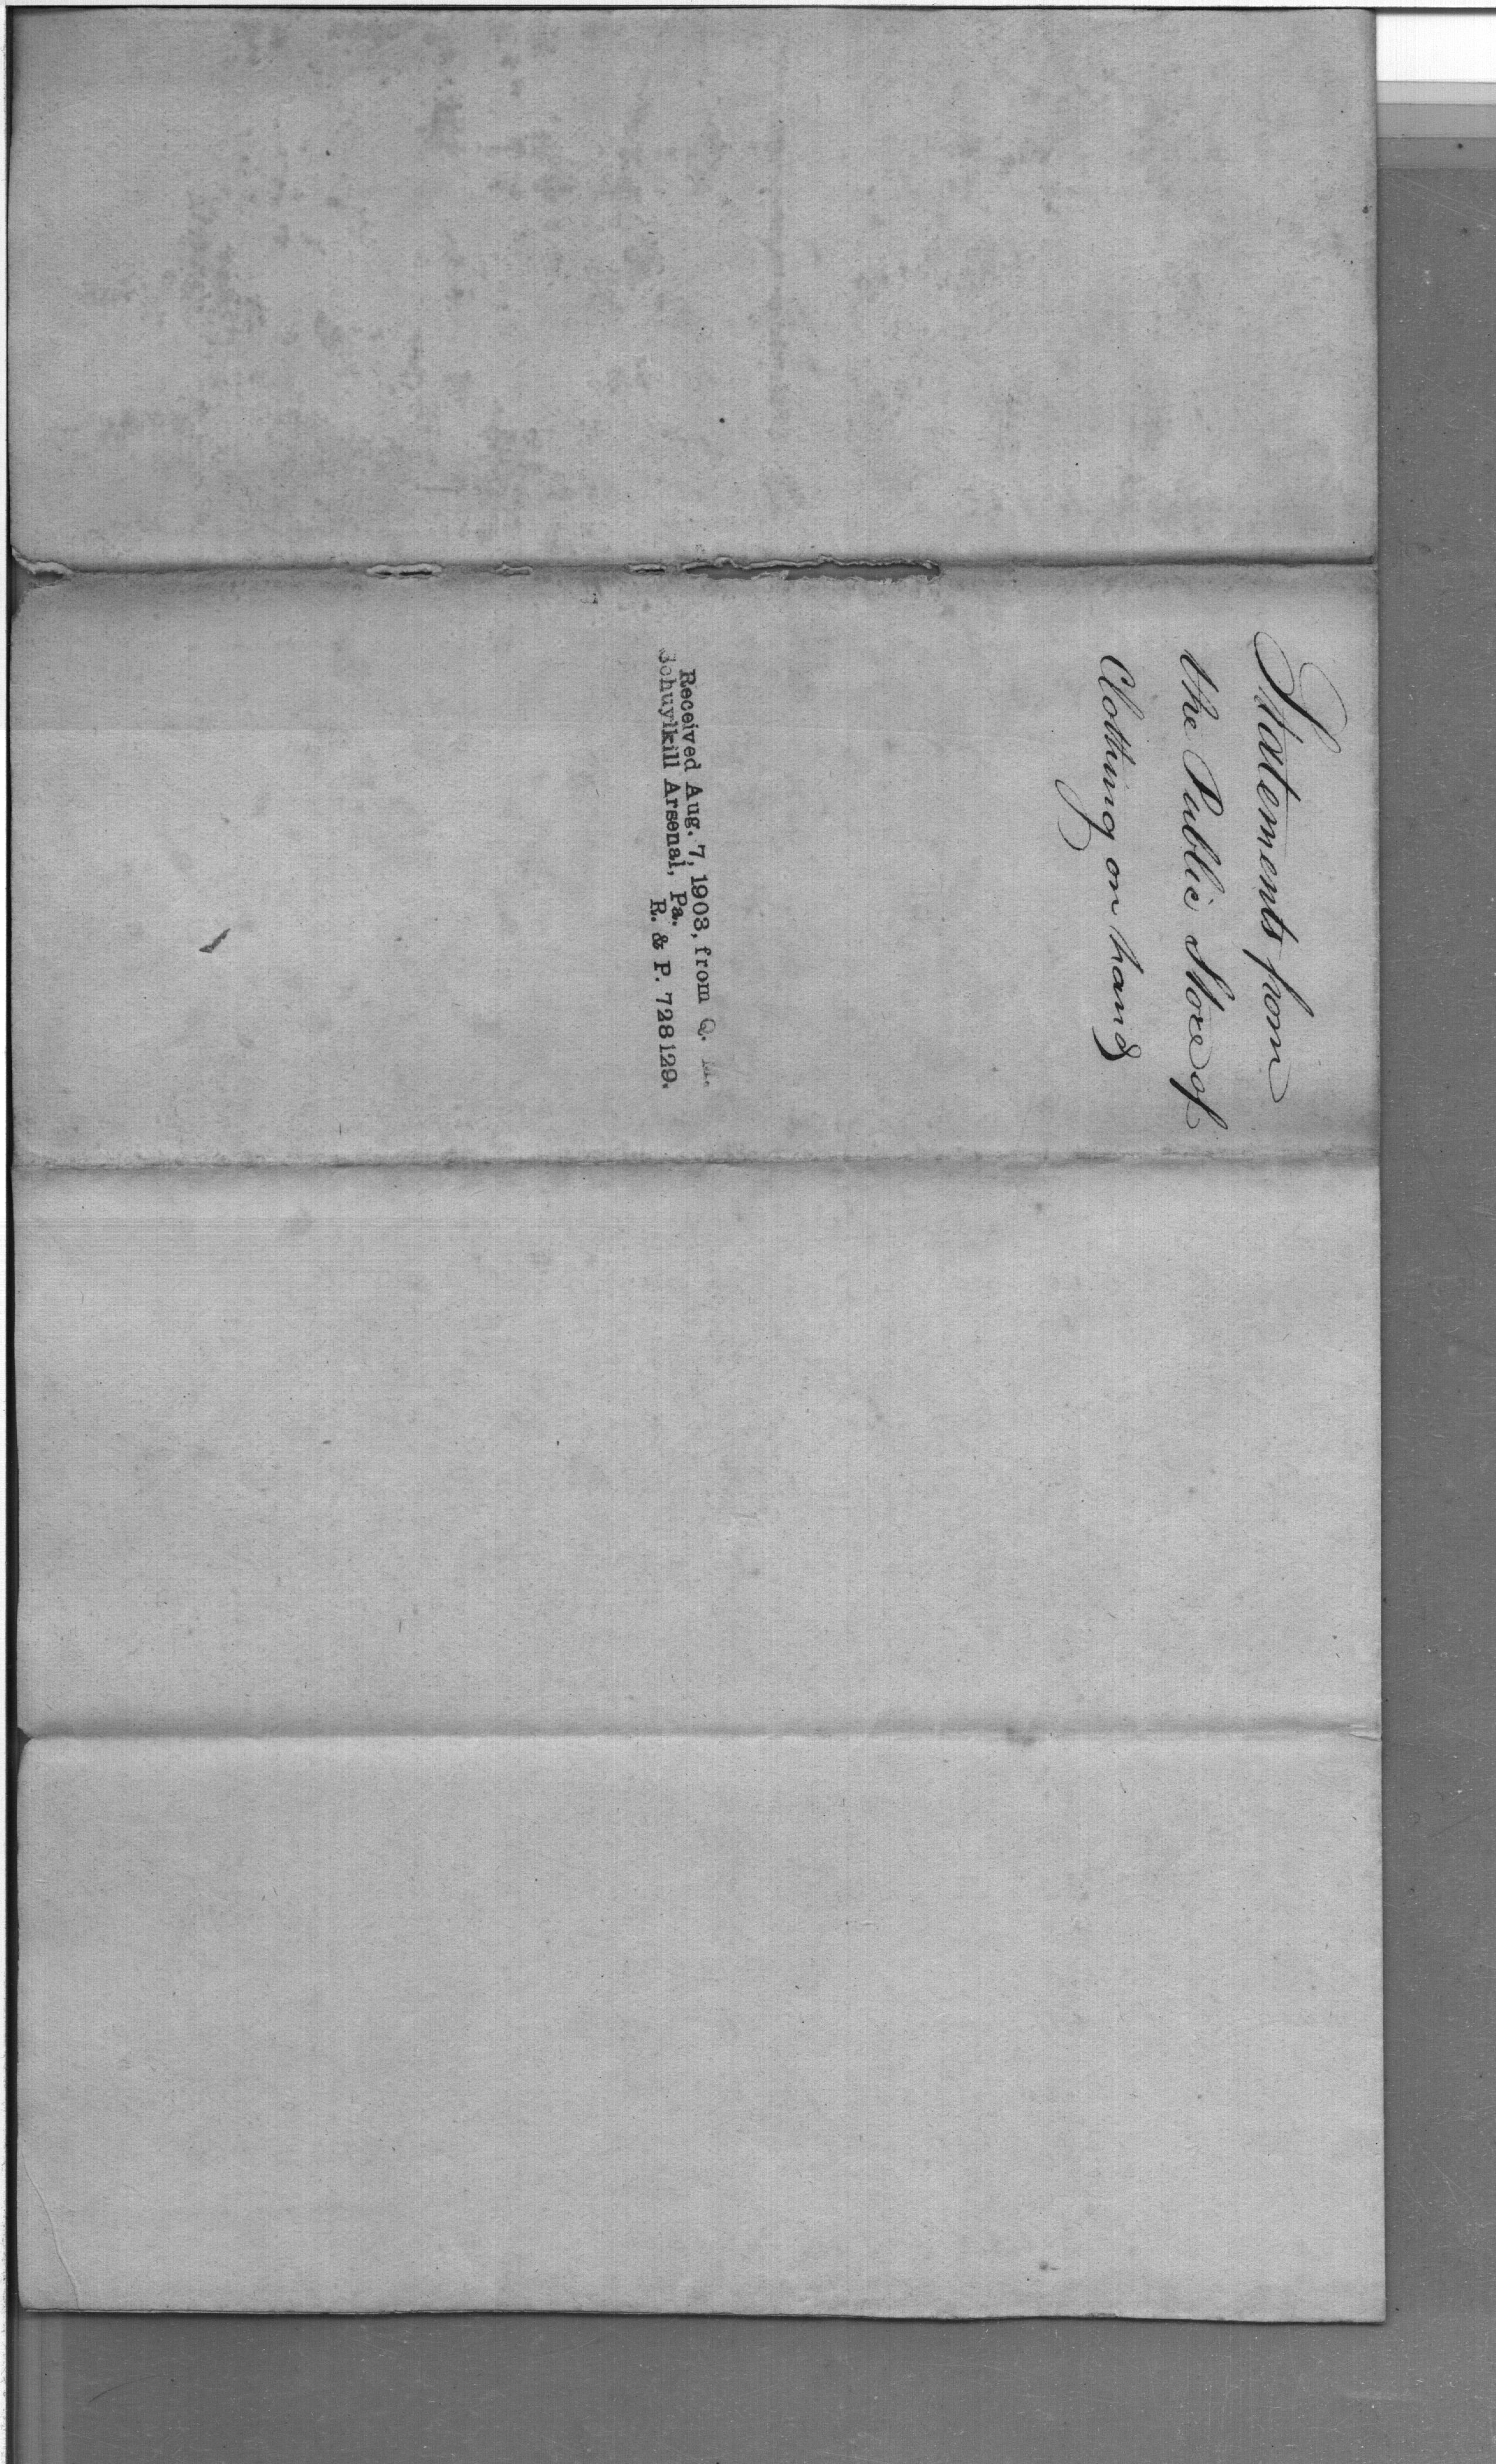 Statements from
the Public Store of
Clothing on hand
Received Aug. 7, 1903, from Q. M.
Schuylkill Arsenal, Pa.
R. & P. 728129.